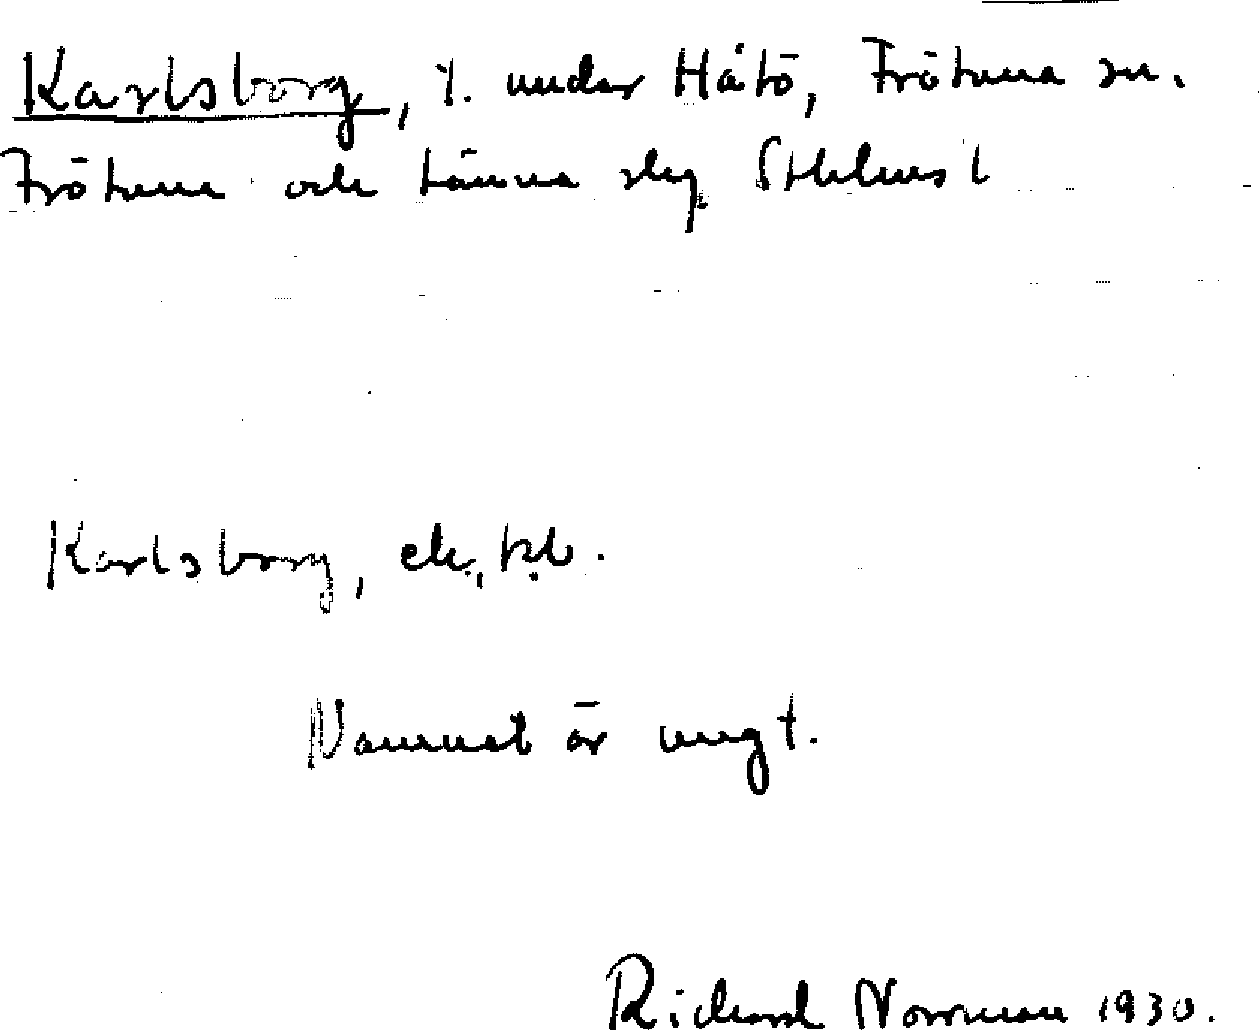 Karlsborg, under Håtö, Frötuna sn.
Frötuna och Länna slg Sthlms l
Karlsborg, ek.,
Namnet är ungt.
Richard Norrman 1930.